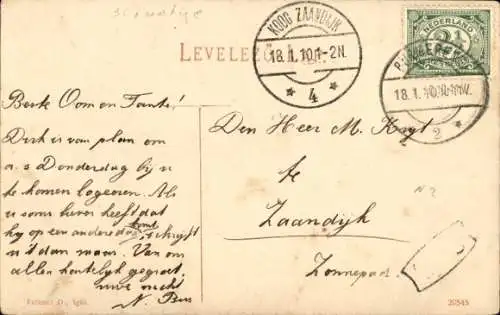 KOOG ZAANDIJK
18.1.10.1-2N.
4
NEDERLAND
2½
18.1.10
2
Beste Oom en Tante!
Dirk is van plan om
a.s Donderdag bij u
te komen logeeren. Als
u soms liever heeft dat
hij op een andere dag komt, schrijft
u 't dan maar. Van ons
allen hartelijk gegroet,
uwe nicht
N. Bus
Den Heer M.
te
Zaandijk
Zonnepad
N 2
29545